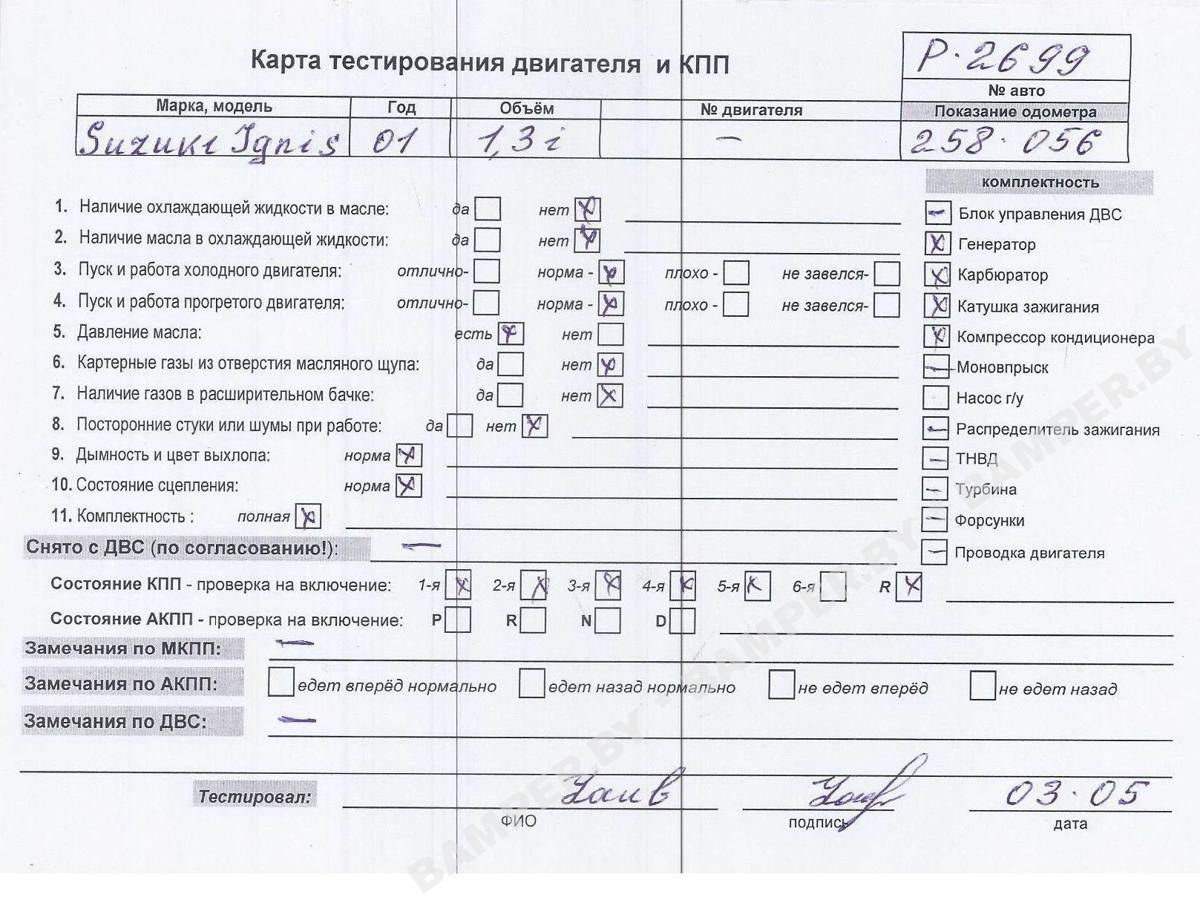 Карта тестирования двигателя и КПП
Р·2699
№ авто
Марка, модель Год Объём № двигателя Показание одометра
Suzuki Ignis 01 1,3i – 258·056
комплектность
1. Наличие охлаждающей жидкости в масле: да нет X
2. Наличие масла в охлаждающей жидкости: да нет X
3. Пуск и работа холодного двигателя: отлично- норма - X плохо - не завелся-
4. Пуск и работа прогретого двигателя: отлично- норма - X плохо - не завелся-
5. Давление масла: есть X нет
6. Картерные газы из отверстия масляного щупа: да нет X
7. Наличие газов в расширительном бачке: да нет X
8. Посторонние стуки или шумы при работе: да нет X
9. Дымность и цвет выхлопа: норма X
10. Состояние сцепления: норма X
11. Комплектность : полная X
– Блок управления ДВС
X Генератор
X Карбюратор
X Катушка зажигания
X Компрессор кондиционера
– Моновпрыск
Насос г/у
– Распределитель зажигания
– ТНВД
– Турбина
– Форсунки
– Проводка двигателя
Снято с ДВС (по согласованию!): –
Состояние КПП - проверка на включение: 1-я X 2-я X 3-я X 4-я X 5-я X 6-я R X
Состояние АКПП - проверка на включение: P R N D
Замечания по МКПП: –
Замечания по АКПП: едет вперёд нормально едет назад нормально не едет вперёд не едет назад
Замечания по ДВС: –
Тестировал: 03·05
ФИО подпись дата
BAMPER.BY - BAMPER.BY - BAMPER.BY